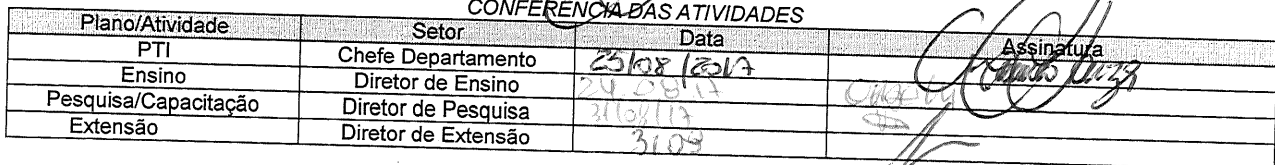 CONFERÊNCIA DAS ATIVIDADES
Plano/Atividade Setor Data Assinatura
PTI Chefe Departamento 25/08/2017
Ensino Diretor de Ensino 24.08.17
Pesquisa/Capacitação Diretor de Pesquisa 31/08/17
Extensão Diretor de Extensão 31.08